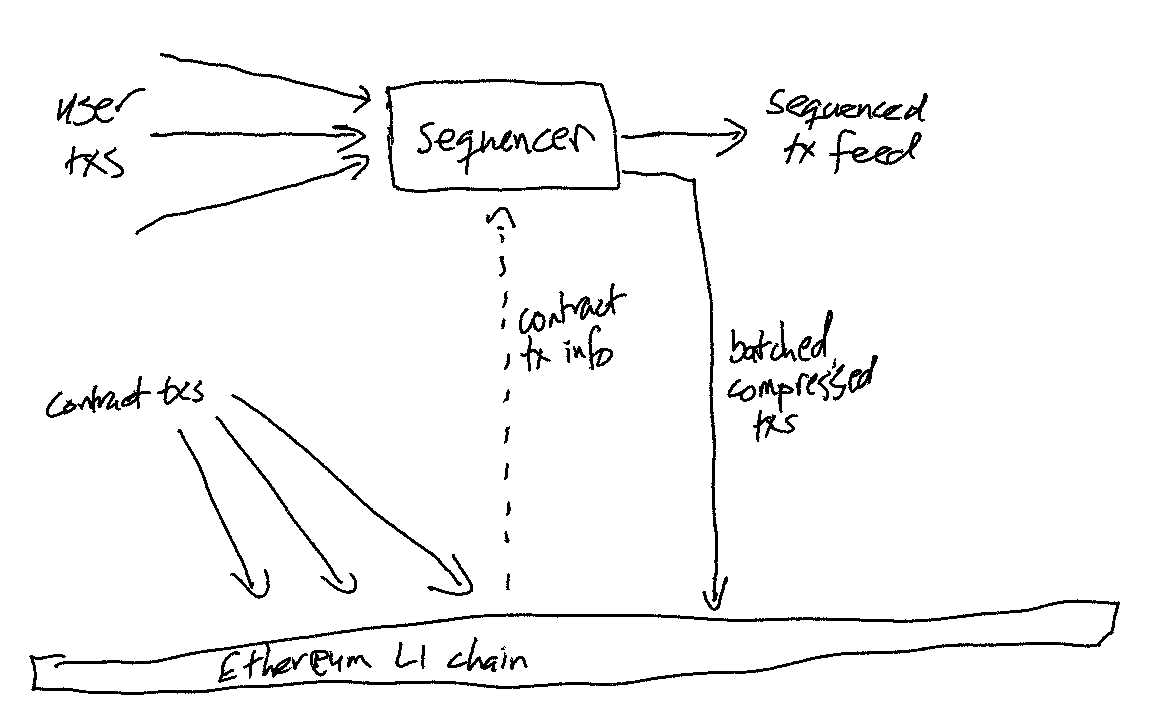 user
txs
sequencer
sequenced
tx feed
contract
tx info
batched,
compressed
txs
contract txs
Ethereum L1 chain